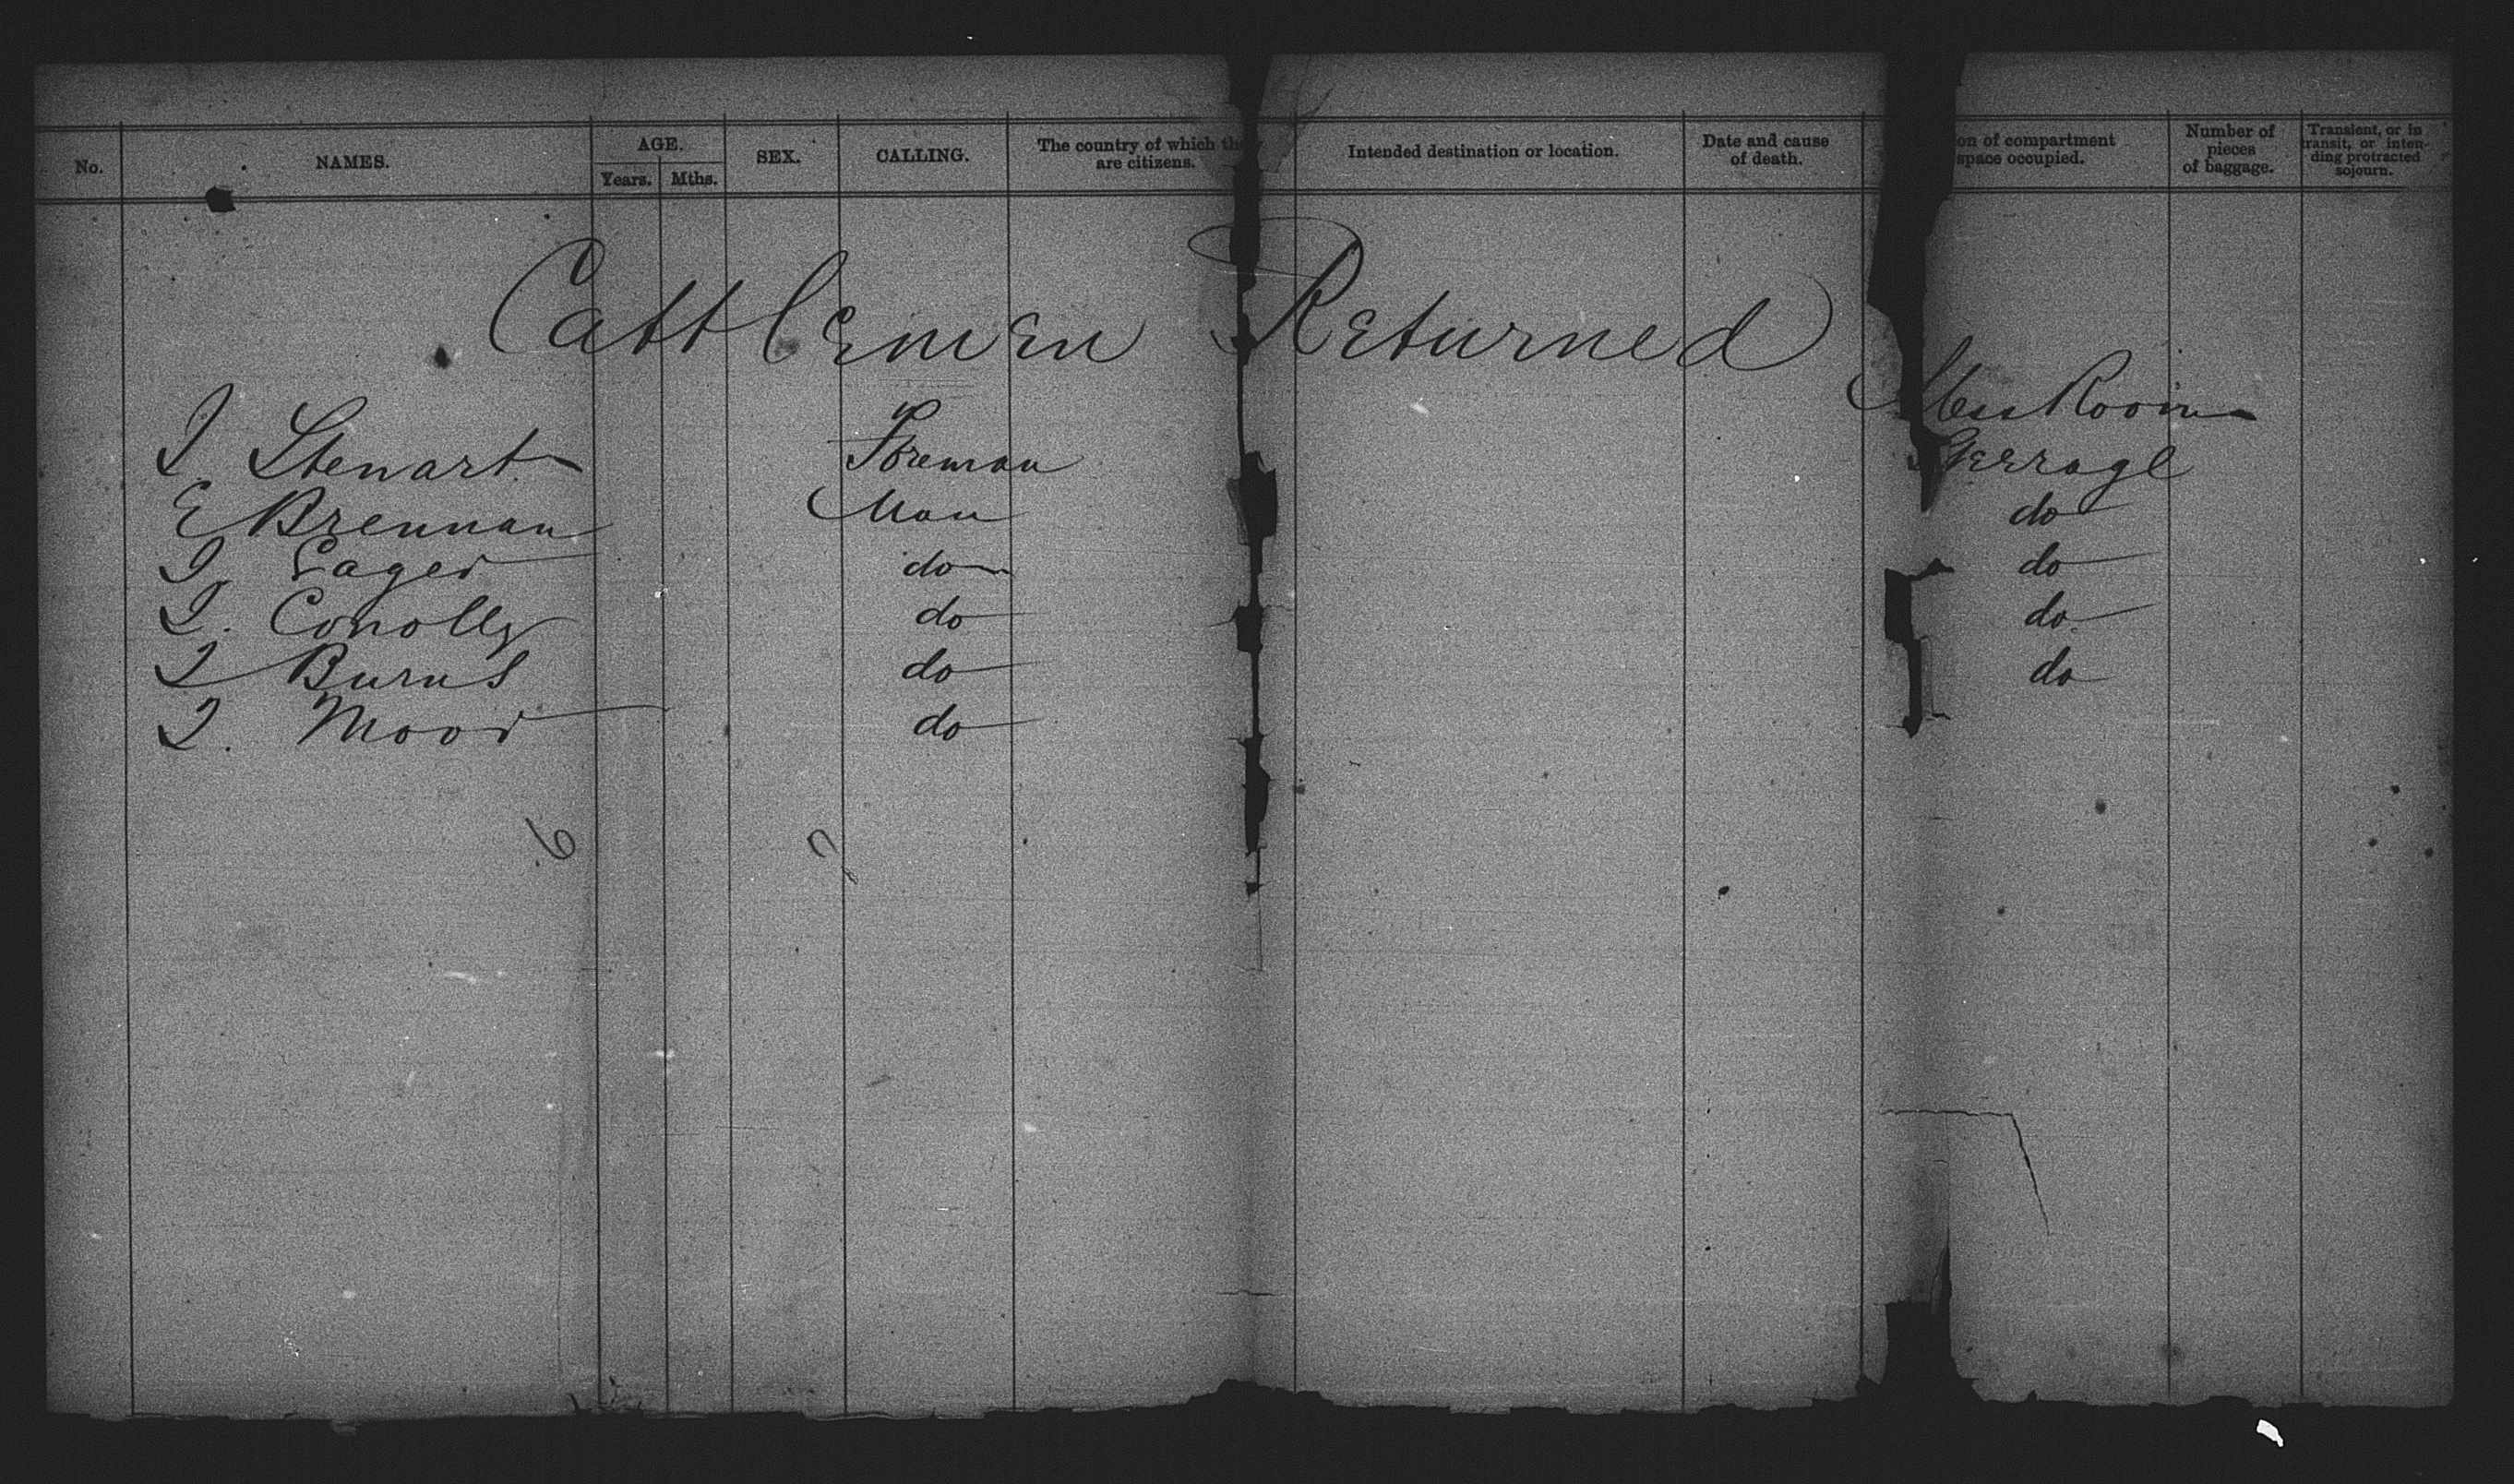 No. NAMES. AGE. Years. Mths. SEX. CALLING. The country of which they are citizens. Intended destination or location. Date and cause of death. on of compartment space occupied. Number of pieces of baggage. Transient, or in transit, or intending protracted sojourn.
Cattlemen Returned
J. Stewart Foreman Mess Room
E Brennan Man Sterrage
J. Eager do do
J. Conolly do do
J Burns do do
J. Moor do do
6